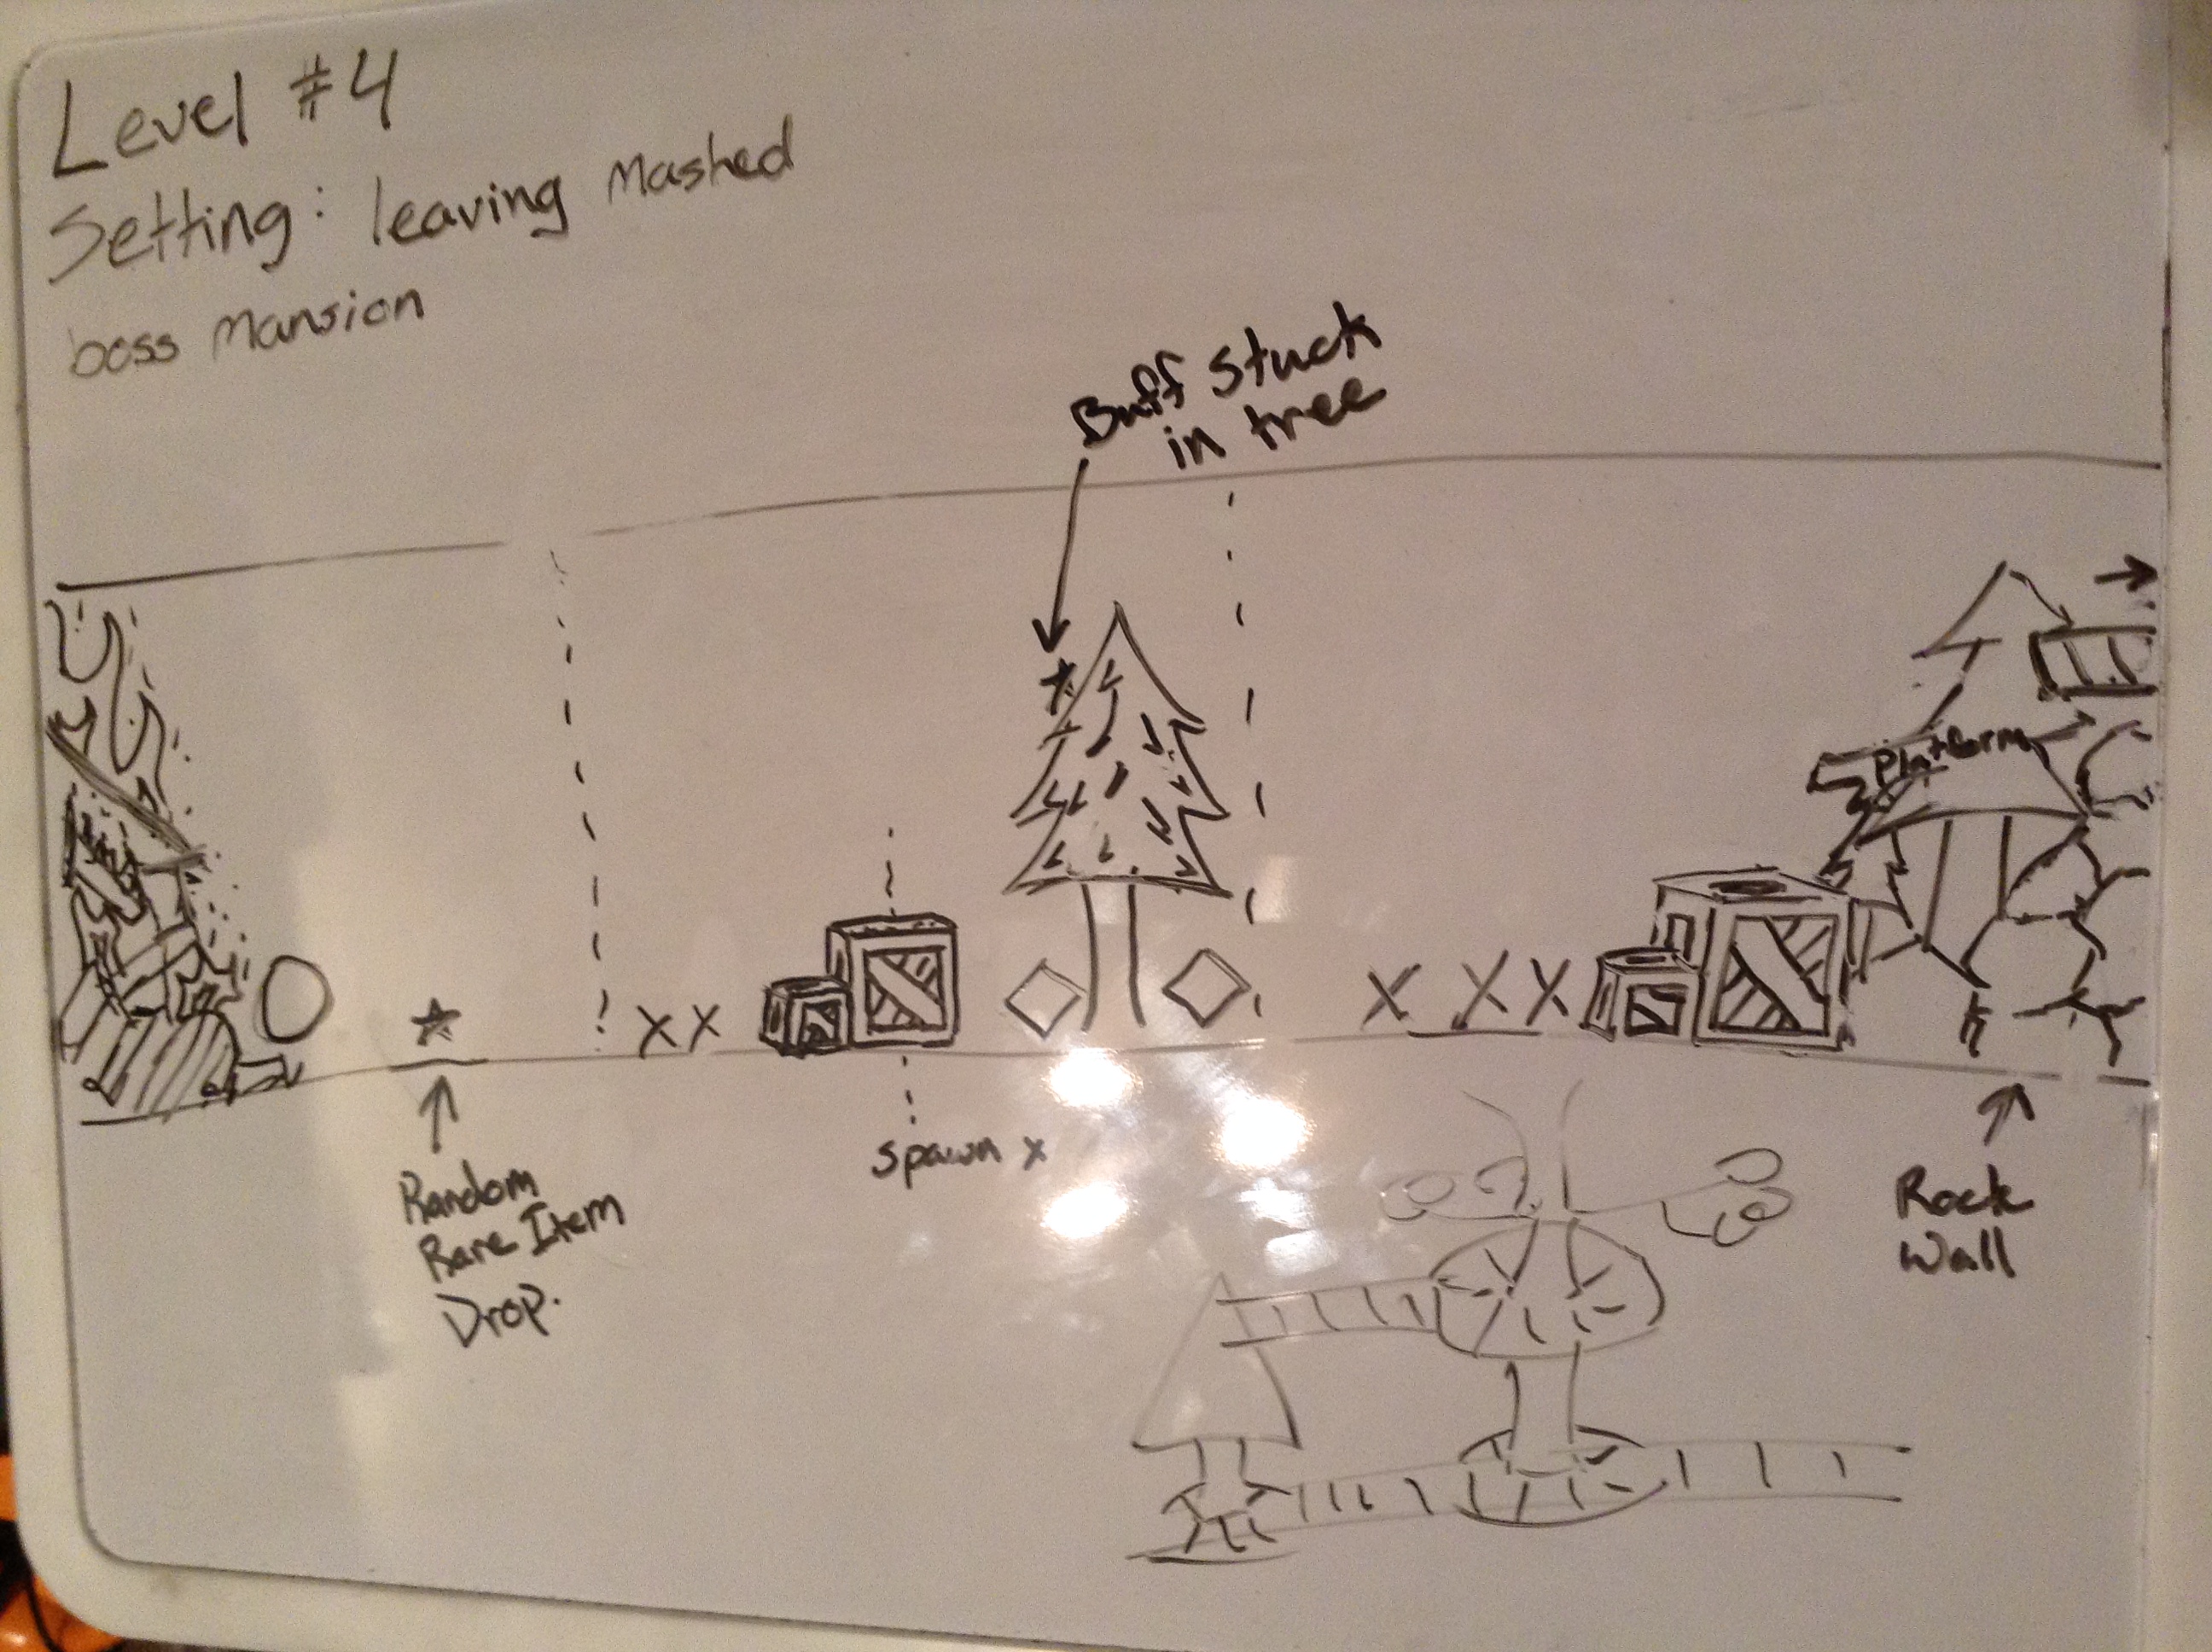 Level #4
Setting: leaving mashed
boss mansion
Buff stuck
in tree
Platform
Random
Rare Item
Drop.
spawn x
Rock
Wall